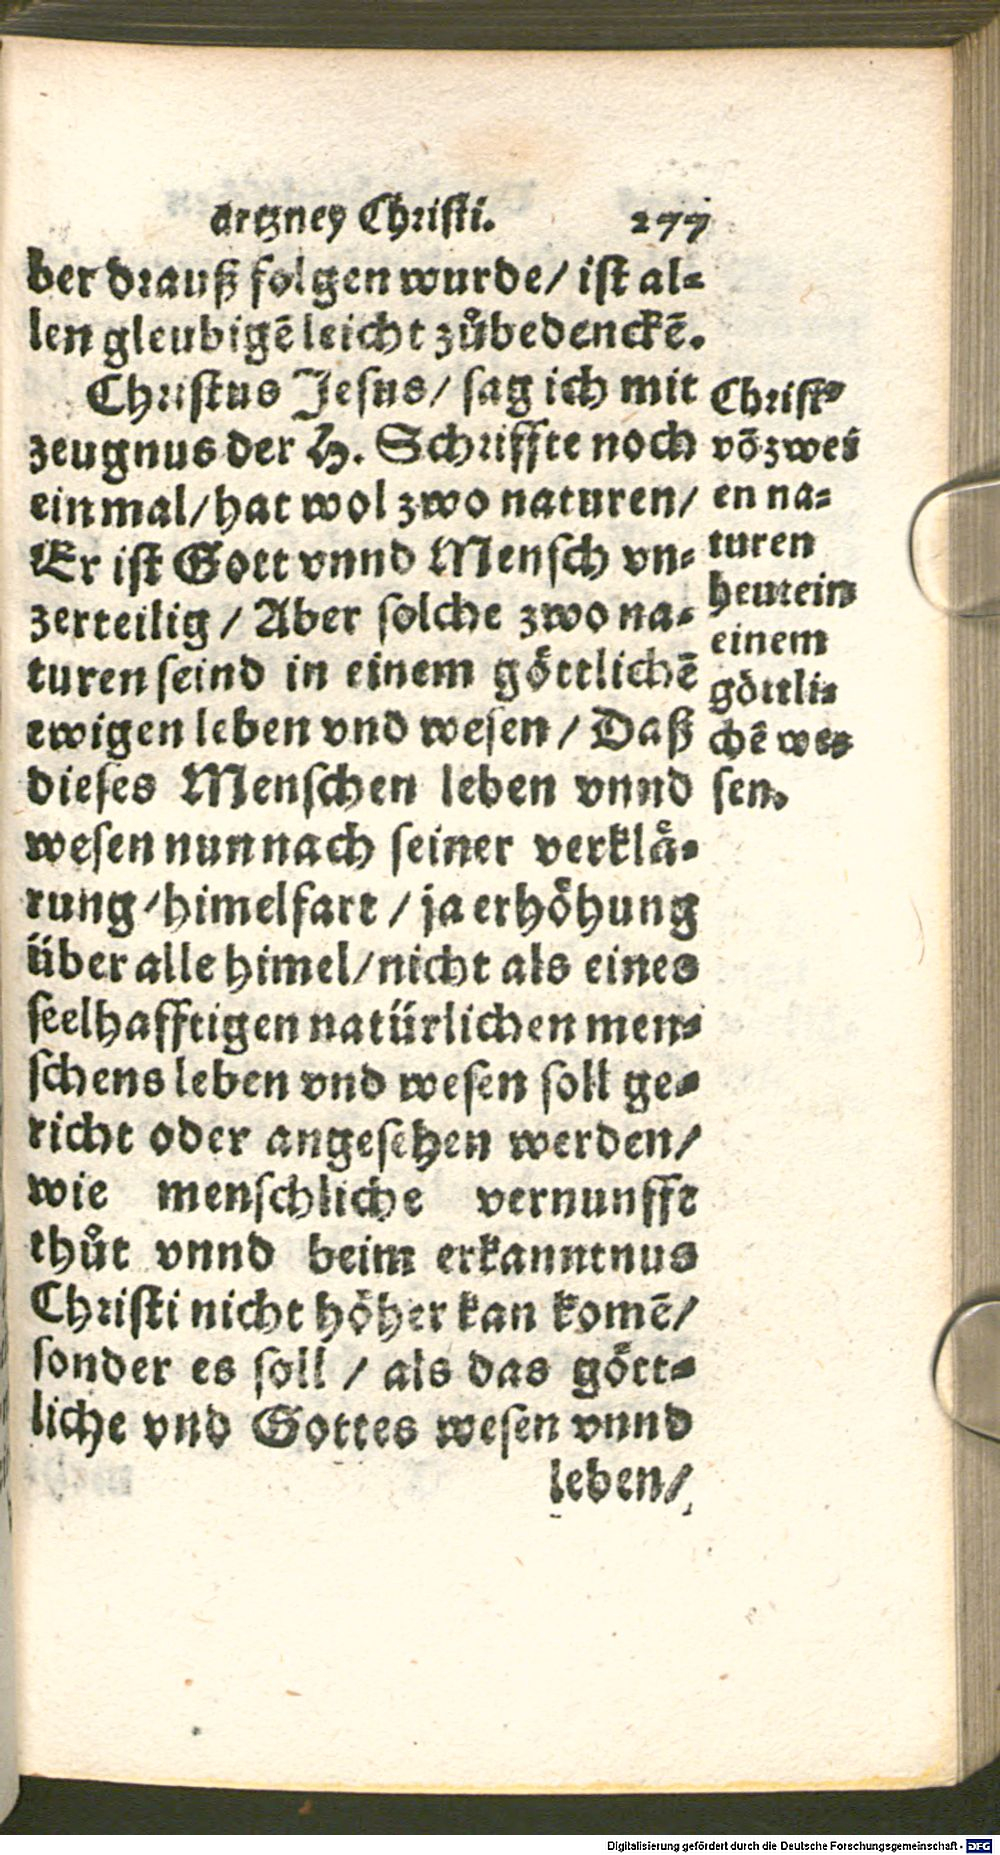 artzney Christi. 277
ber drauß folgen wurde/ ist al-
len gleubigẽ leicht zůbedenckẽ.
Christus Jesus/ sag ich mit
zeugnus der H. Schriffte noch
einmal/ hat wol zwo naturen/
Er ist Gott vnnd Mensch vn-
zerteilig/ Aber solche zwo na-
turen seind in einem göttlichẽ
ewigen leben vnd wesen/ Daß
dieses Menschen leben vnnd
wesen nun nach seiner verklå-
rung/ himelfart/ ja erhöhung
über alle himel/ nicht als eines
seelhafftigen natürlichen men-
schens leben vnd wesen soll ge-
richt oder angesehen werden/
wie menschliche vernunfft
thůt vnnd beim erkanntnus
Christi nicht höher kan komẽ/
sonder es soll/ als das gött-
liche vnd Gottes wesen vnnd
leben/
Christꝰ
võ zwei
en na-
turen
heut ein
einem
göttli-
chẽ we-
sen.
Digitalisierung gefördert durch die Deutsche Forschungsgemeinschaft - DFG